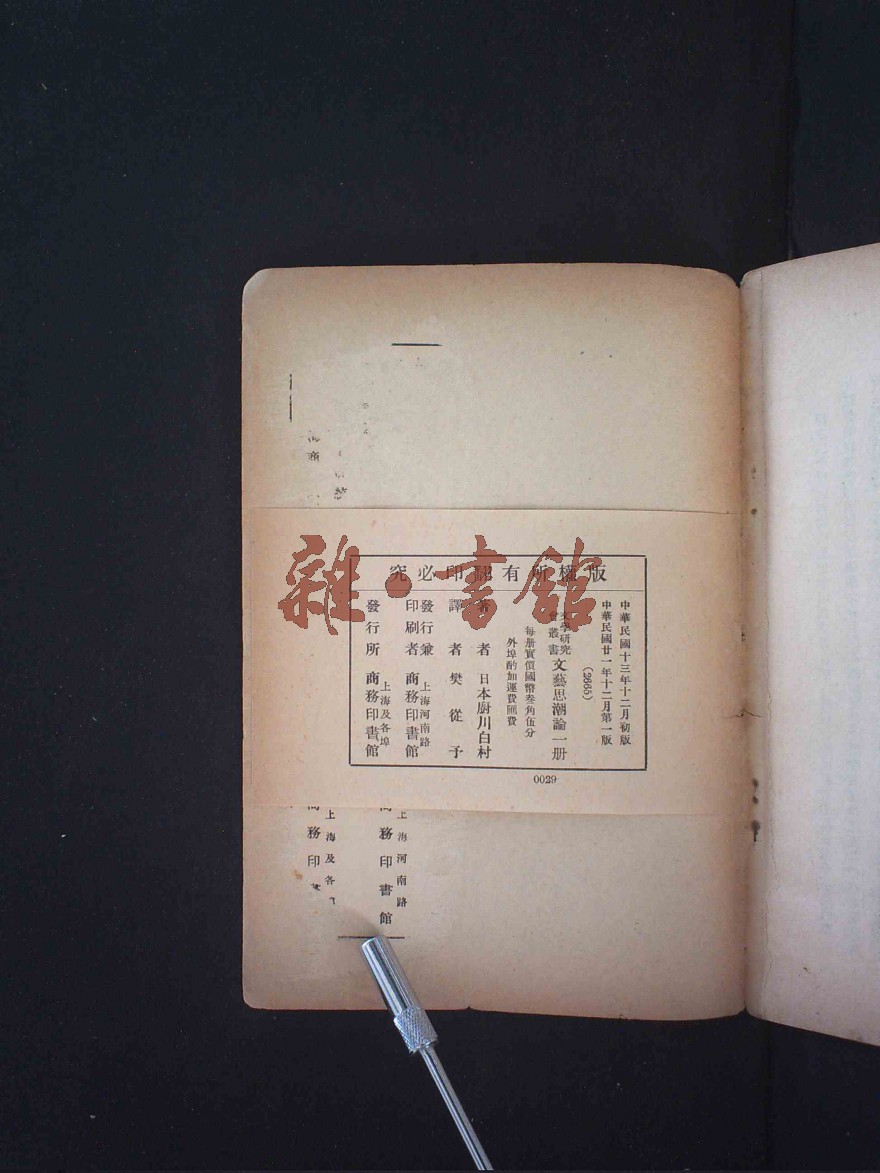 雜·書館
版權所有翻印必究
中華民國十三年十二月初版
中華民國廿一年十二月第一版
(2665)
文學研究會叢書 文藝思潮論一册
每册實價國幣叁角伍分
外埠酌加運費匯費
著者 日本廚川白村
譯者 樊從予
發行兼印刷者 上海河南路 商務印書館
發行所 上海及各埠 商務印書館
0029
上海河南路
商務印書館
上海及各
商務印書